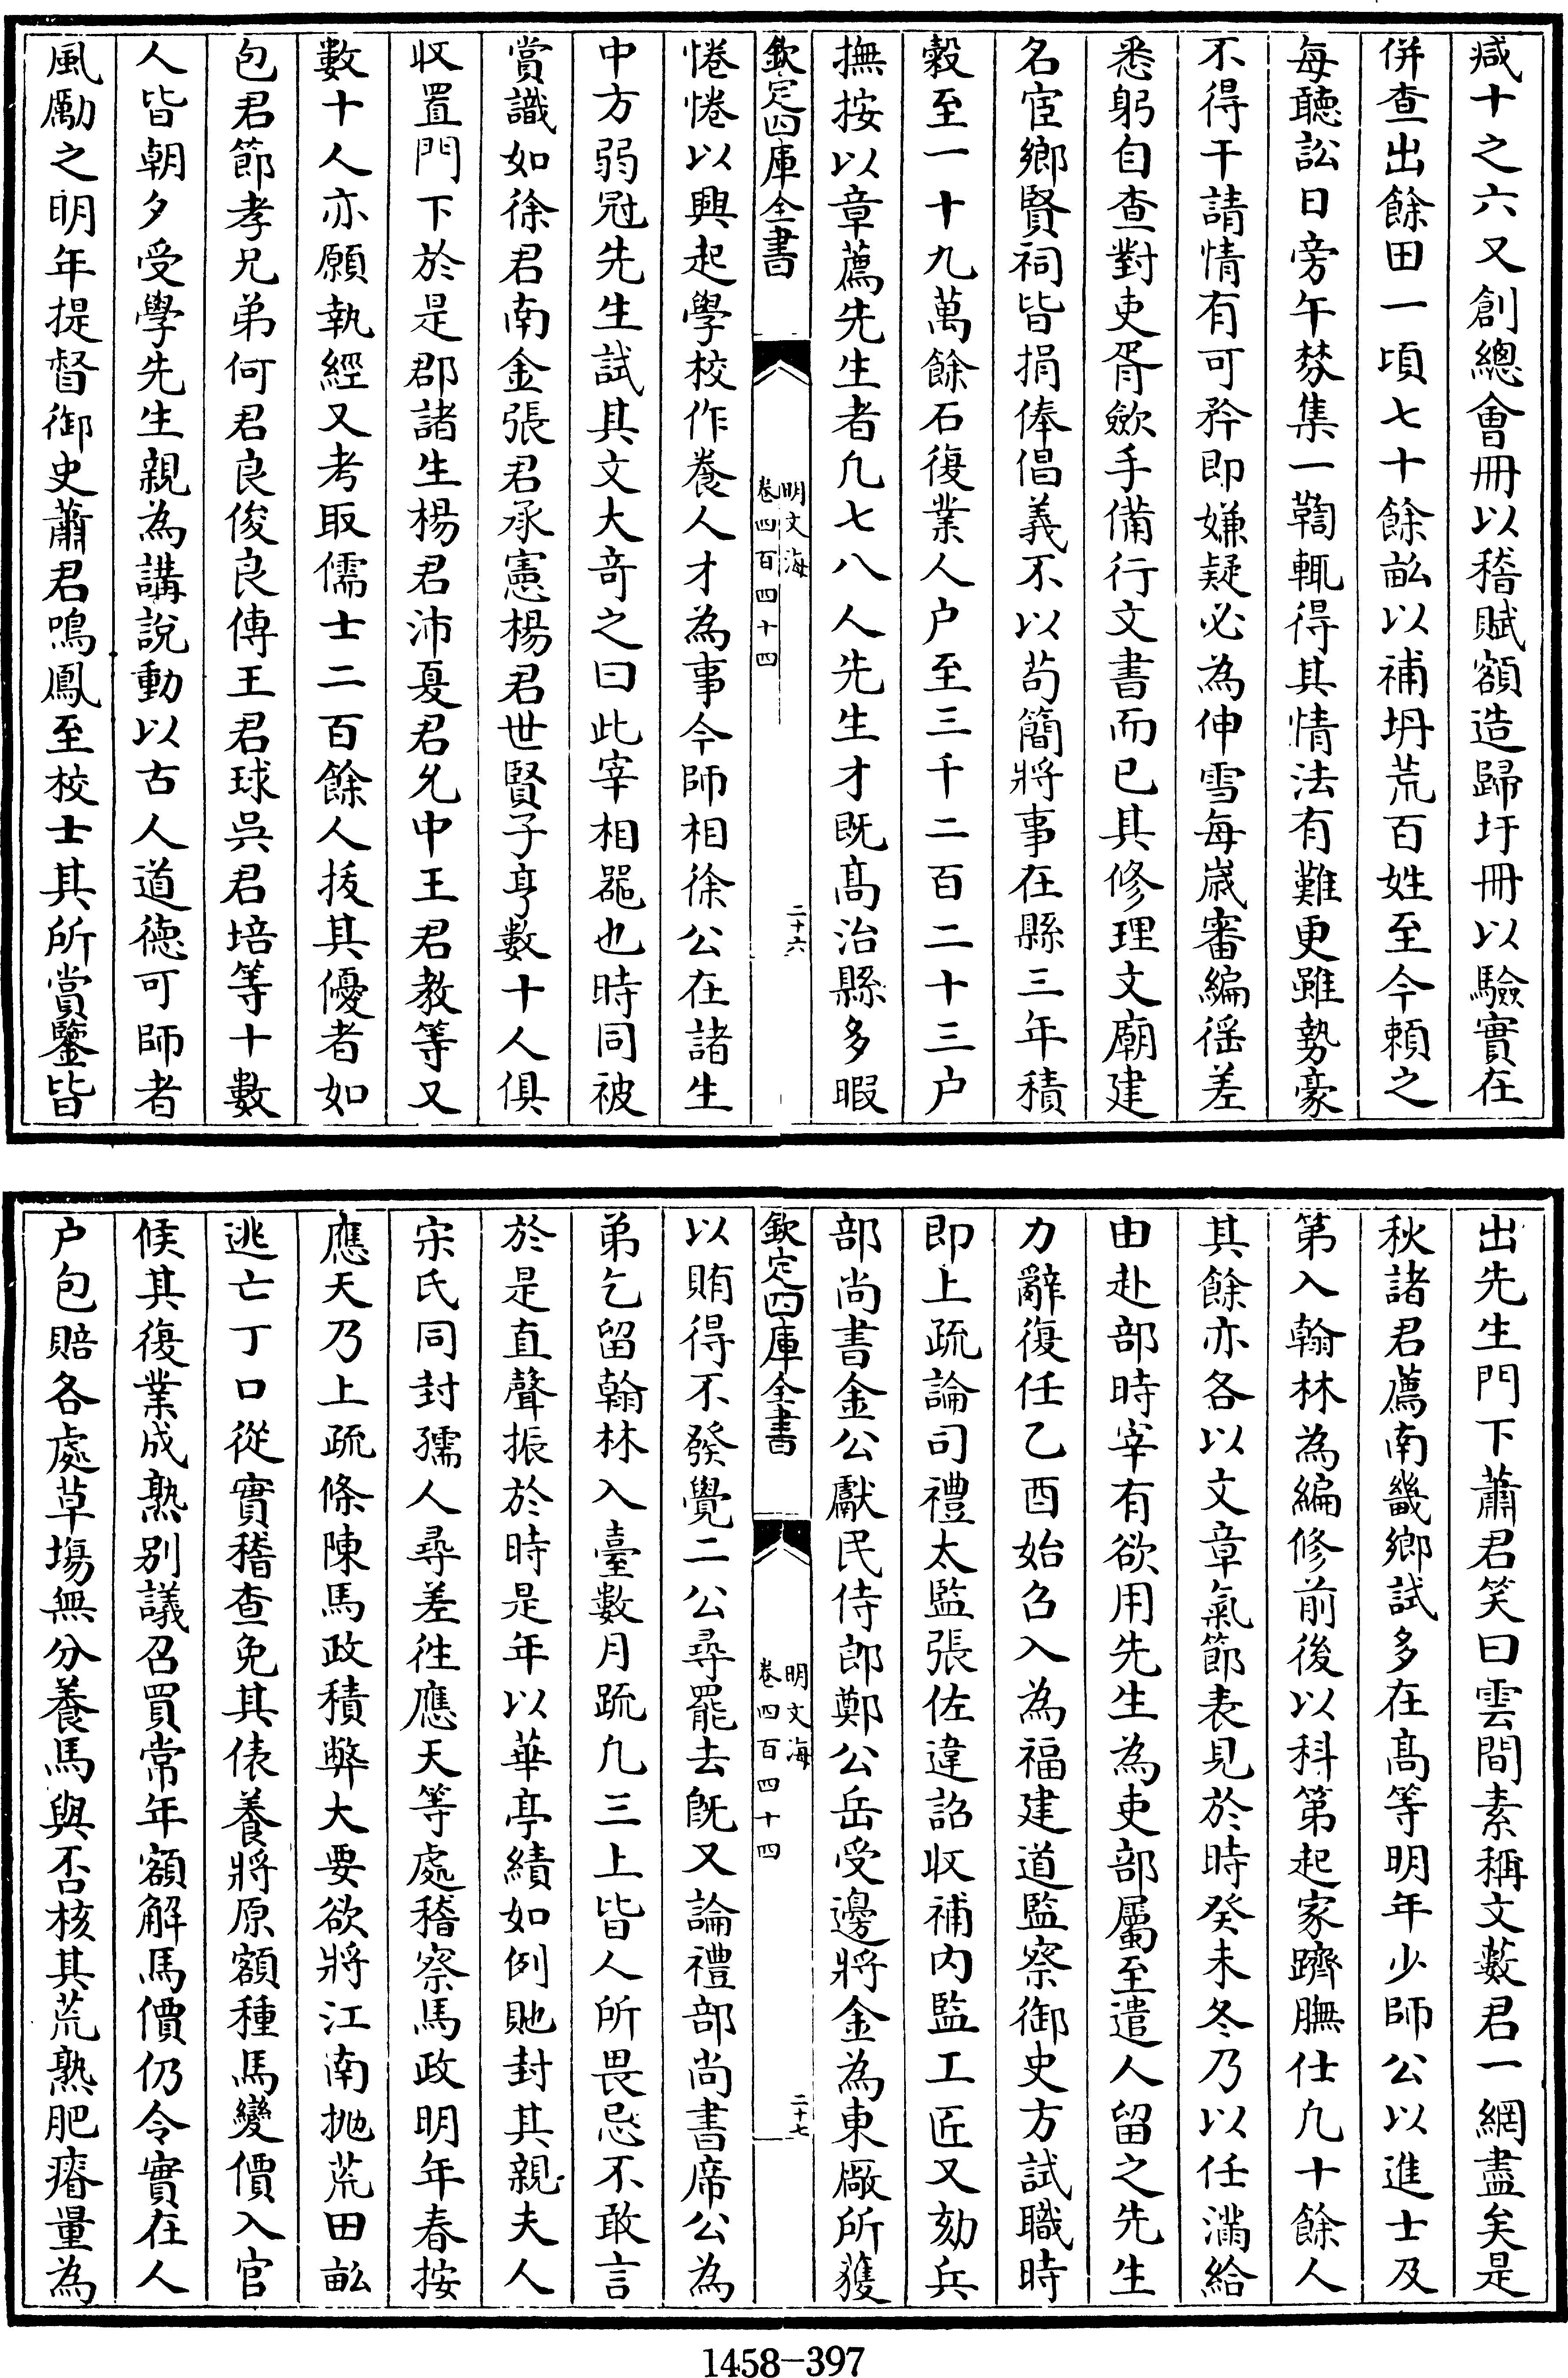 減十之六又創總會冊以稽賦額造歸圩冊以驗實在
併查出餘田一頃七十餘畝以補坍荒百姓至今賴之
每聽訟日旁午棼集一鞫輒得其情法有難更雖勢豪
不得干請情有可矜即嫌疑必為伸雪每嵗審編徭差
悉躬自查對吏胥歛手備行文書而已其修理文廟建
名宦鄉賢祠皆捐俸倡義不以苟簡將事在縣三年積
穀至一十九萬餘石復業人户至三千二百二十三户
撫按以章薦先生者凡七八人先生才既髙治縣多暇
欽定四庫全書
明文海
卷四百四十四
二十六
惓惓以興起學校作養人才為事今師相徐公在諸生
中方弱冠先生試其文大竒之曰此宰相噐也時同被
賞識如徐君南金張君承憲楊君世賢子亨數十人俱
收置門下於是郡諸生楊君沛夏君允中王君教等又
數十人亦願執經又考取儒士二百餘人拔其優者如
包君節孝兄弟何君良俊良傅王君球吳君培等十數
人皆朝夕受學先生親為講說動以古人道德可師者
風勵之明年提督御史蕭君鳴鳳至校士其所賞鑒皆
出先生門下蕭君笑曰雲間素稱文藪君一網盡矣是
秋諸君薦南畿鄉試多在髙等明年少師公以進士及
第入翰林為編修前後以科第起家躋膴仕凡十餘人
其餘亦各以文章氣節表見於時癸未冬乃以任滿給
由赴部時宰有欲用先生為吏部屬至遣人留之先生
力辭復任乙酉始召入為福建道監察御史方試職時
即上疏論司禮太監張佐違詔收補内監工匠又劾兵
部尚書金公獻民侍郎鄭公岳受邊將金為東厰所獲
欽定四庫全書
明文海
卷四百四十四
二十七
以賄得不發覺二公尋罷去旣又論禮部尚書席公為
弟乞留翰林入臺數月疏凡三上皆人所畏忌不敢言
於是直聲振於時是年以華亭績如例貤封其親夫人
宋氏同封孺人尋差徃應天等處稽察馬政明年春按
應天乃上疏條陳馬政積弊大要欲將江南抛荒田畝
逃亡丁口從實稽查免其俵養將原額種馬變價入官
候其復業成熟别議召買常年額解馬價仍令實在人
户包賠各處草塲無分養馬與否核其荒熟肥瘠量為
1458-397